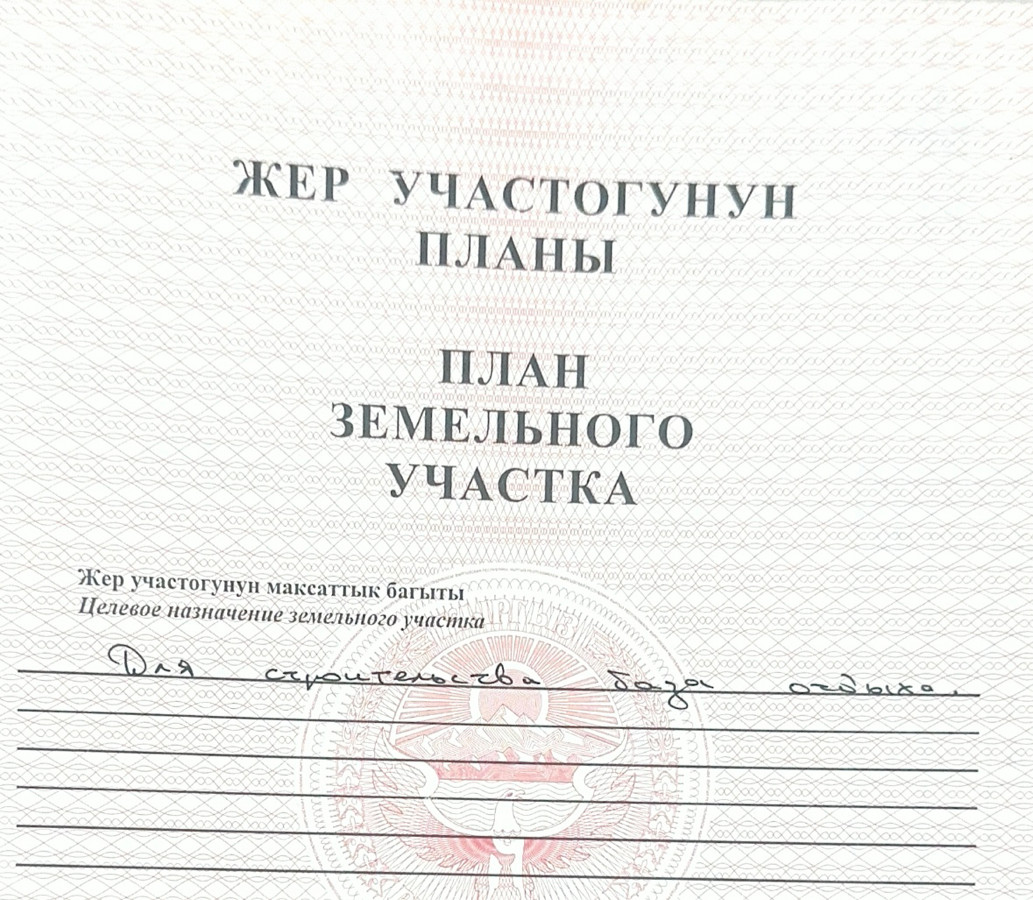 ЖЕР УЧАСТОГУНУН
ПЛАНЫ
ПЛАН
ЗЕМЕЛЬНОГО
УЧАСТКА
Жер участогунун максаттык багыты
Целевое назначение земельного участка
Для строительства база отдыха.